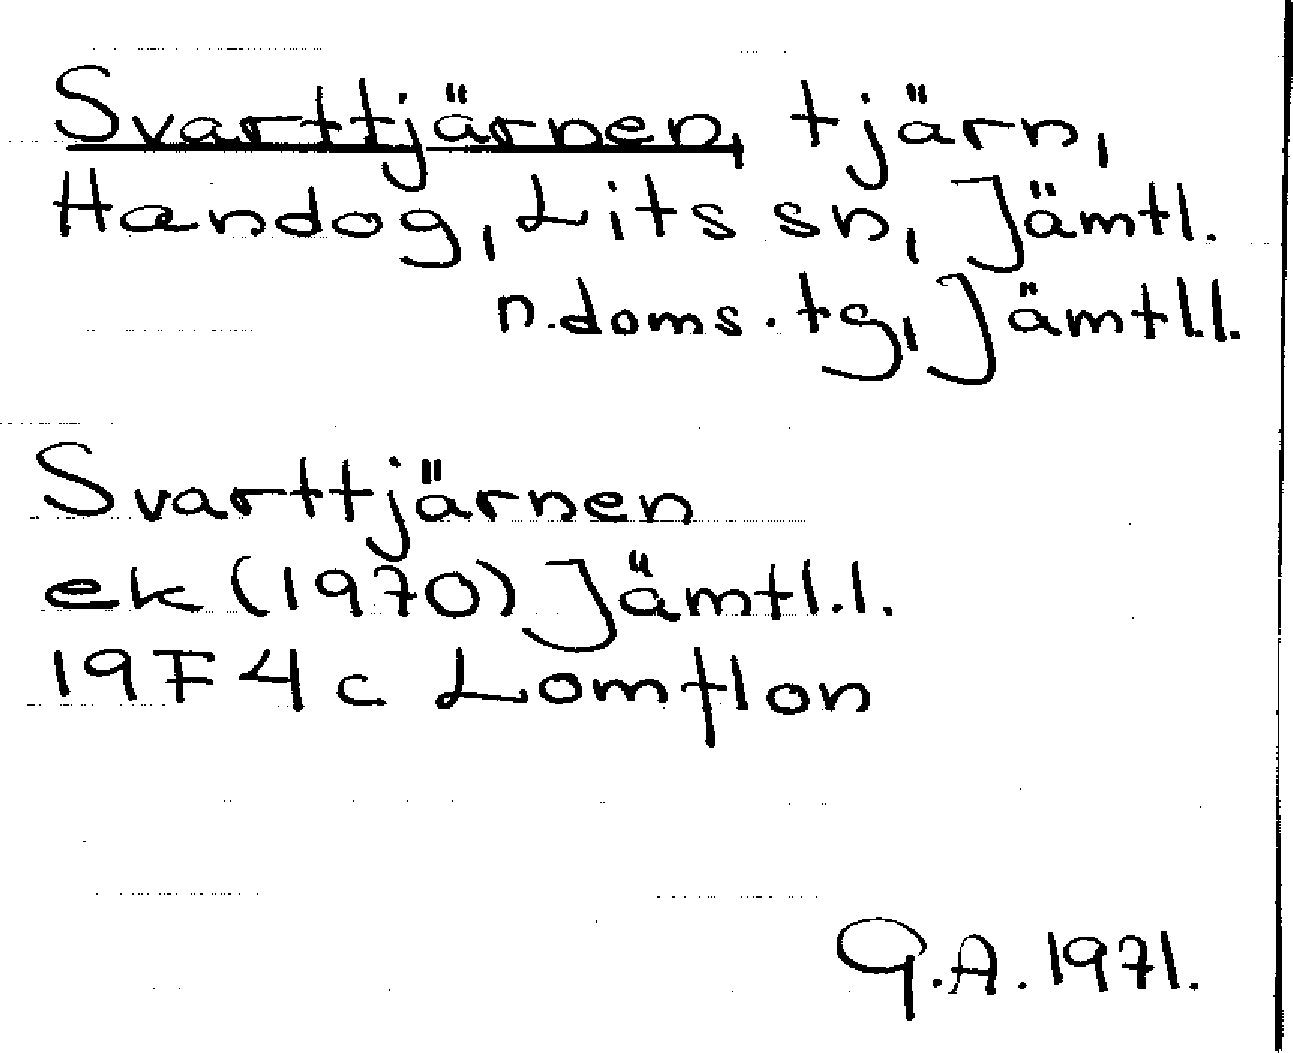 Svarttjärnen, tjärn,
Handog, Lits sn, Jämtl.
n.doms.tg, Jämtl.l.
Svarttjärnen
ek (1970) Jämtl.l.
19F 4c Lomflon
G.A. 1971.